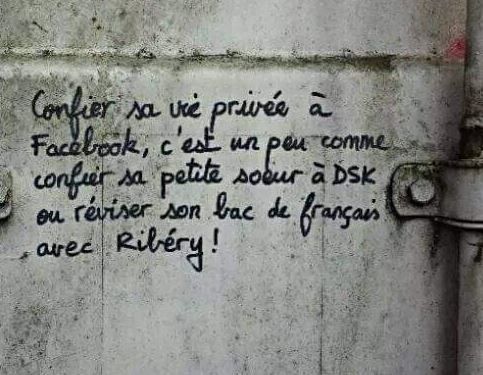 Confier sa vie privée à
Facebook, c'est un peu comme
confier sa petite soeur à DSK
ou réviser son bac de français
avec Ribéry !